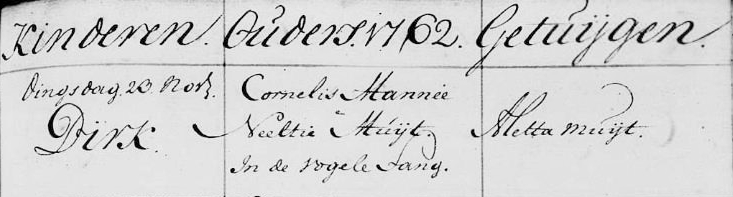 Kinderen. Ouders. 1762. Getuijgen.
Dingsdag. 23. Novr. Cornelis Mannée
Dirk. Neeltie Muijt. Aletta muijt.
In de vogele Sang.